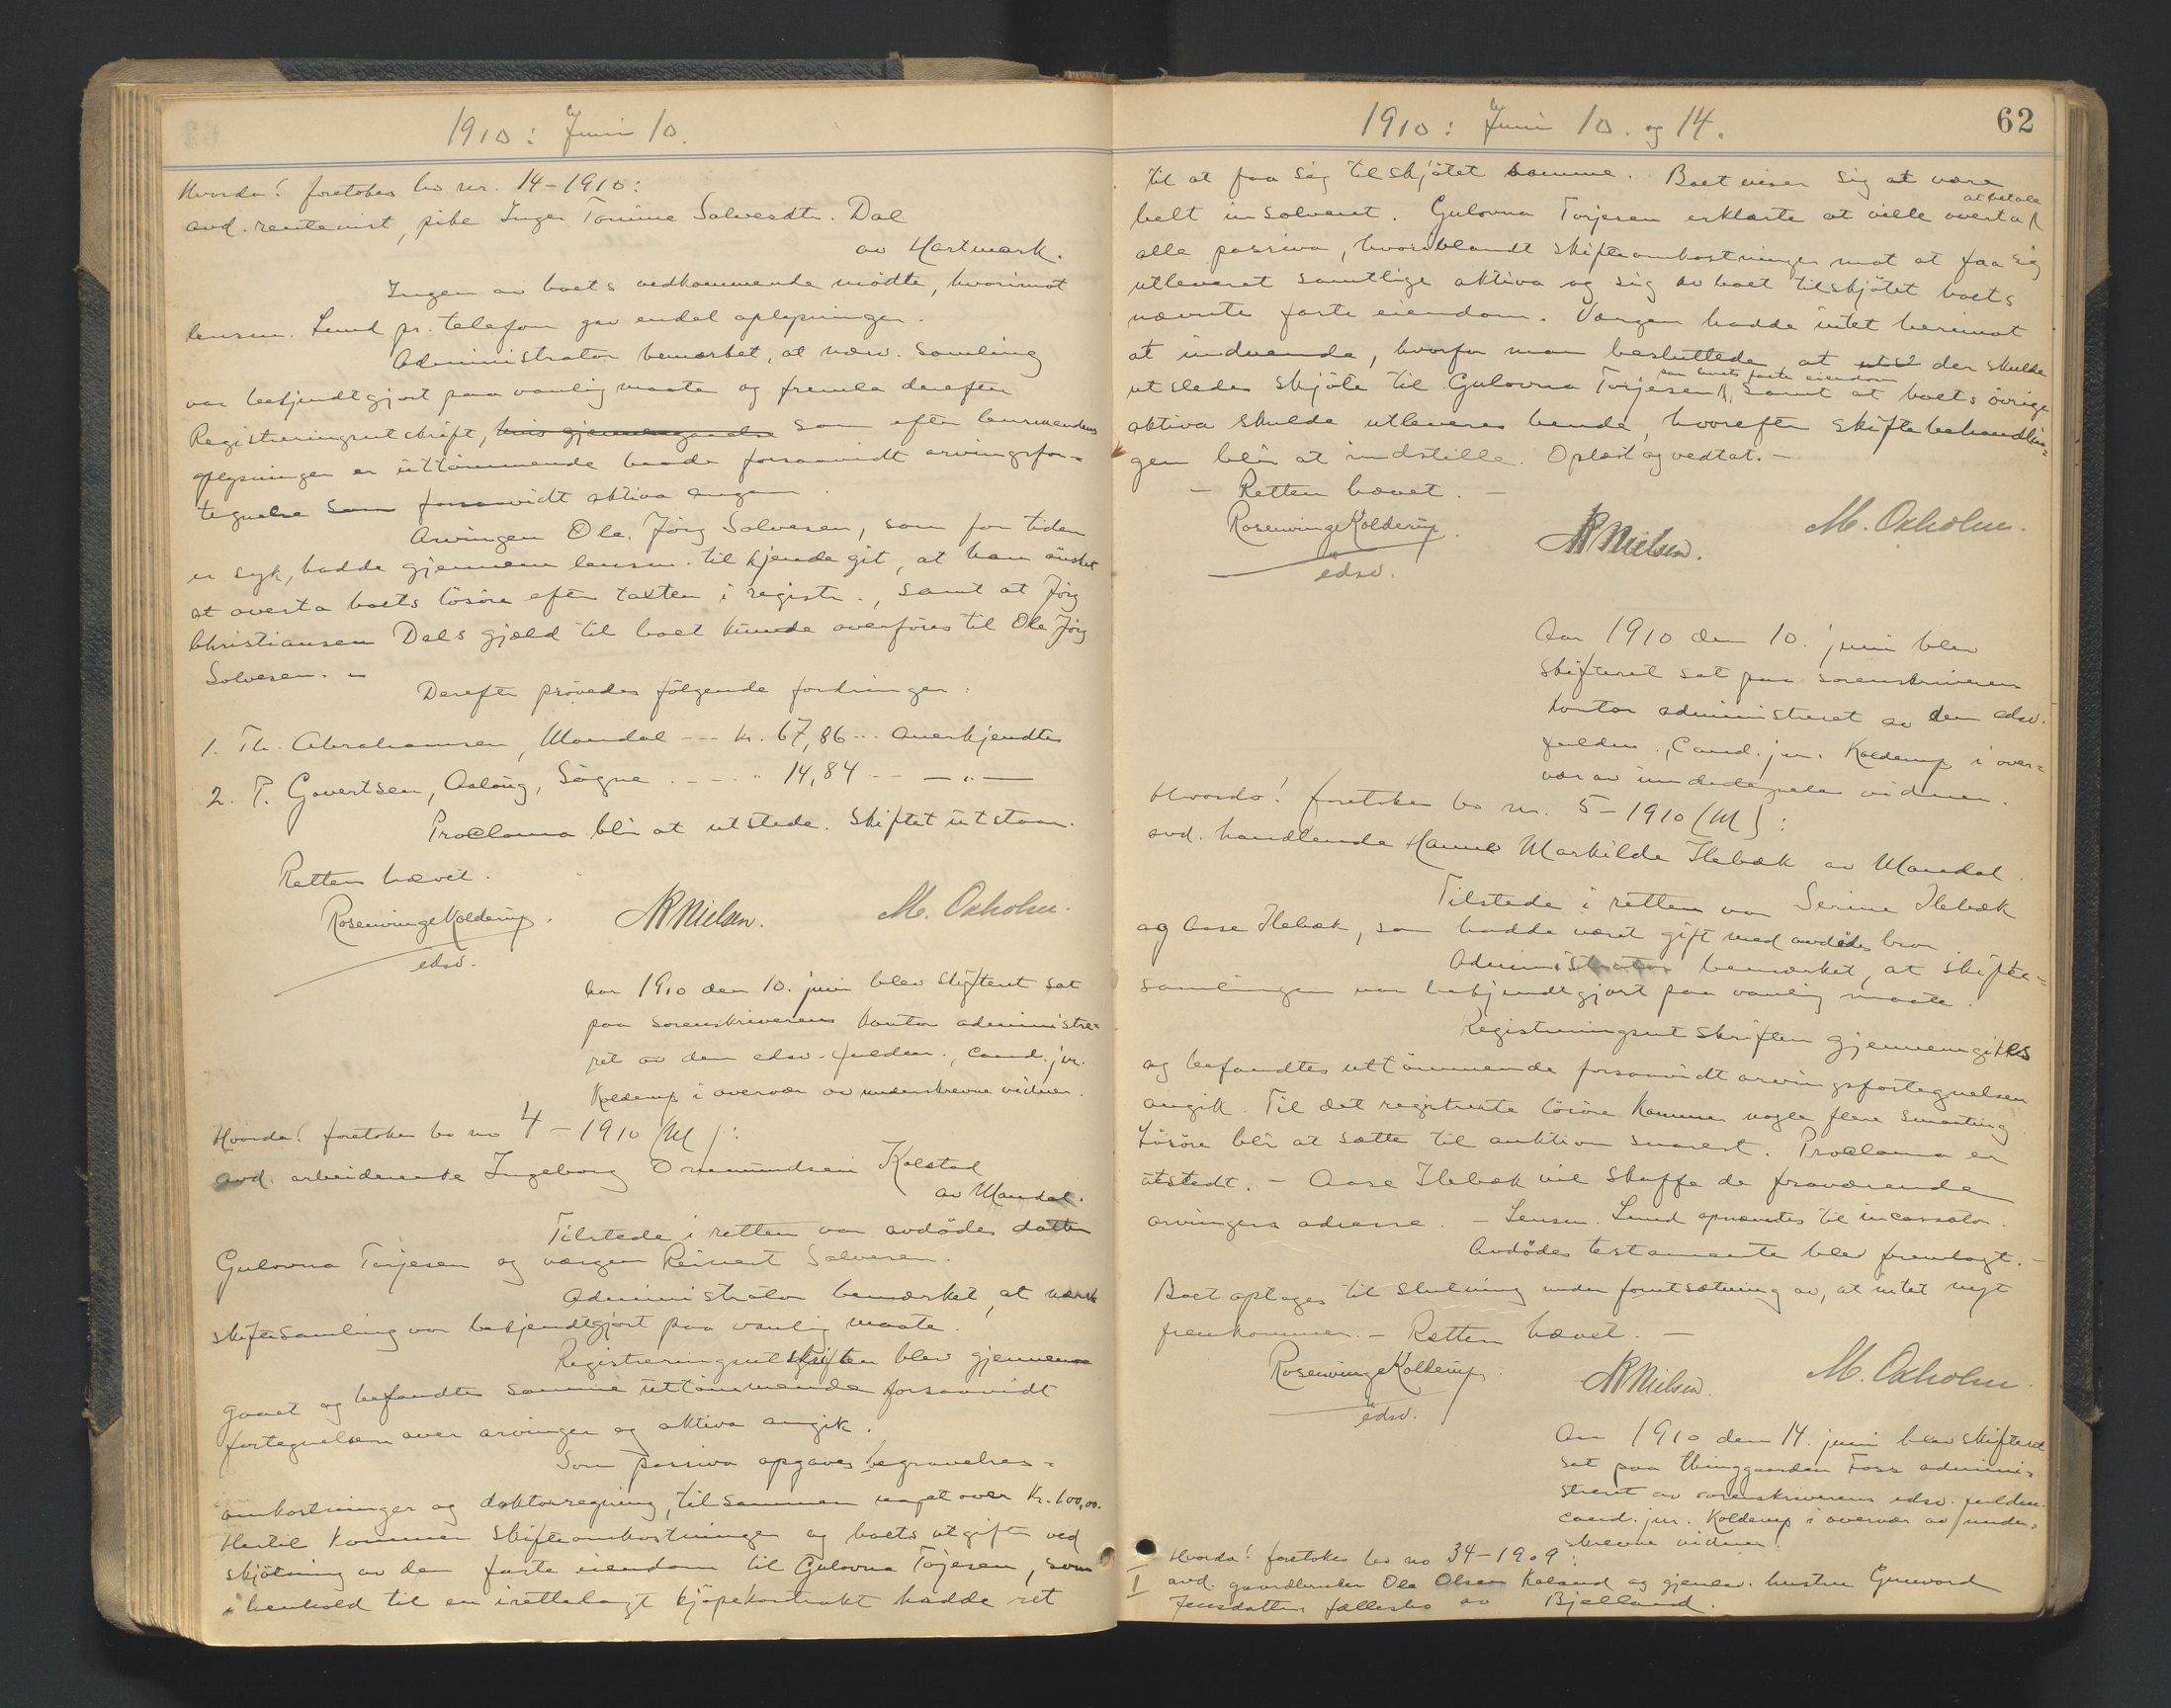 1910: Juni 10.
Hvorda! foretokes bo nr. 14-1910:
avd. rentenist, pike Inger Tomine Salvesdtr. Dal
av Hartmark.
Ingen av boets vedkommende mødte, hvorimot
lensm. Lund pr. telefon gav endel oplysninger.
Administrator bemærket, at nærv. samling
var bekjendtgjort paa vanlig maate og fremla derefter
Registreringsutskrift, hvis gjennemgaaelse som efter lensmandens
oplysninger er uttømmende baade forsaavidt arvingsfor-
tegnelse som forsaavidt aktiva angaar.
Arvingen Ole Jørg Salvesen, som for tiden
er syk, hadde gjennem lensm. til kjende git, at han ønsket
at overta boets løsøre efter taxten i registr., samt at Jørg
Christiansen Dals gjæld til boet kunde overføres til Ole Jørg
Solvesen. -
Derefter prøvedes følgende fordringer:
1. Th. Abrahamsen, Mandal --- kr. 67,86 --- Anerkjendtes
2. T. Govertsen, Aaløug, Søgne - - - " 14,84 -- — " —
Proclama blir at utstede. Skiftet utstaar.
Retten hævet.
Rosenvinge Kolderup.
edsv.
AR Nielsen.
M. Oxholm.
Aar 1910 den 10. juni blev skifteret sat
paa sorenskriverens kontor administre-
ret av den edsv. fuldm., cand. jur.
Kolderup i overvær av underskrevne vidner.
Hvorda! foretokes bo no 4 - 1910 (M):
avd. arbeiderenke Ingeborg Omundsen Kolstad
av Mandal.
Tilstede i retten var avdødes datter
Gulovna Torjesen ogværgen Reinert Salvesen.
Administrator bemærket, at nærv.
skiftesamling var bekjendtgjort paa vanlig maate.
Registreringsutskriften blev gjennem
gaaet og befandtes samme uttømmende forsaavidt
fortegnelsen over arvinger og aktiva angik.
Som passiva opgaves begravelses-
omkostninger og doktorregning, tilsammen noget over Kr. 100,00.
Hertil kommer skifteomkostninger og boets utgift ved
skjøtning av den faste eiendom til Gulovna Tojesen, som
i henhold til en irettelagt kjøpekontrakt hadde ret
1910: Juni 10. og 14.
62
til at faa sig tilskjøtet samme. Boet viser sig at være
helt insolvent. Gulovna Torjesen erklærte at ville overta at betale
alle passiva, hvoriblandt skifteomkostninger mot at faa sig
utleveret samtlige aktiva og sig av boet tilskjøtet boets
nævnte faste eiendom. Værgen hadde intet herimot
at indvende, hvorfor man besluttede at utst der skulde
utstedes skjøte til Gulovna Torjesen paa boets faste eiendom, samt at boets øvrige
aktiva skulde utleveres hende, hvorefter skiftebehandlin-
gen blir at indstille. Oplæst og vedtat. -
- Retten hævet. -
Rosenvinge Kolderup.
edsv.
AR Nielsen.
M. Oxholm.
Aar 1910 den 10. juni blev
skifteret sat paa sorenskriverens
kontor administreret av den edsv.
fuldm., cand. jur. Kolderup i over-
vær av undertegnede vidner.
Hvorda! foretokes bo nr. 5-1910 (M):
avd. handlende Hanne Markilde Ilebæk av Mandal.
Tilstede i retten var Serine Ilebæk
og Aase Ilebæk, som hadde været gift med avdødes bror.
Administrator bemærket, at skifte-
samlingen var bekjendtgjort paa vanlig maate.
Registreringsutskriften gjennemgikkes
og befandtes uttømmende forsaavidt arvingsfortegnelsen
angik. Til det registrerte løsøre kommer nogle flere smaating
Løsøre blir at sætte til auktion snarest. Proclama er
utstedt. - Aase Ilebæk vil skaffe de fraværende
arvingers adresse. - Lensm. Lund opnævntes til incassator.
Avdødes testamente blev fremlagt. -
Boet optages til slutning under forutsætning av, at intet nyt
fremkommer. - Retten hævet. -
Rosenvinge Kolderup.
edsv.
AR Nielsen.
M. Oxholm.
Aar 1910 den 14. juni blev skifteret
sat paa thinggaarden Foss admini-
streret av sorenskriverens edsv. fuldm.
cand. jur. Kolderup i overvær av under-
skrevne vidner.
Hvorda! foretokes bo no 34-1909:
avd. gaardbruker Ole Olsen Kaland og gjenlev. hustru Gunvord
Jensdatters fællesbo av Bjelland.